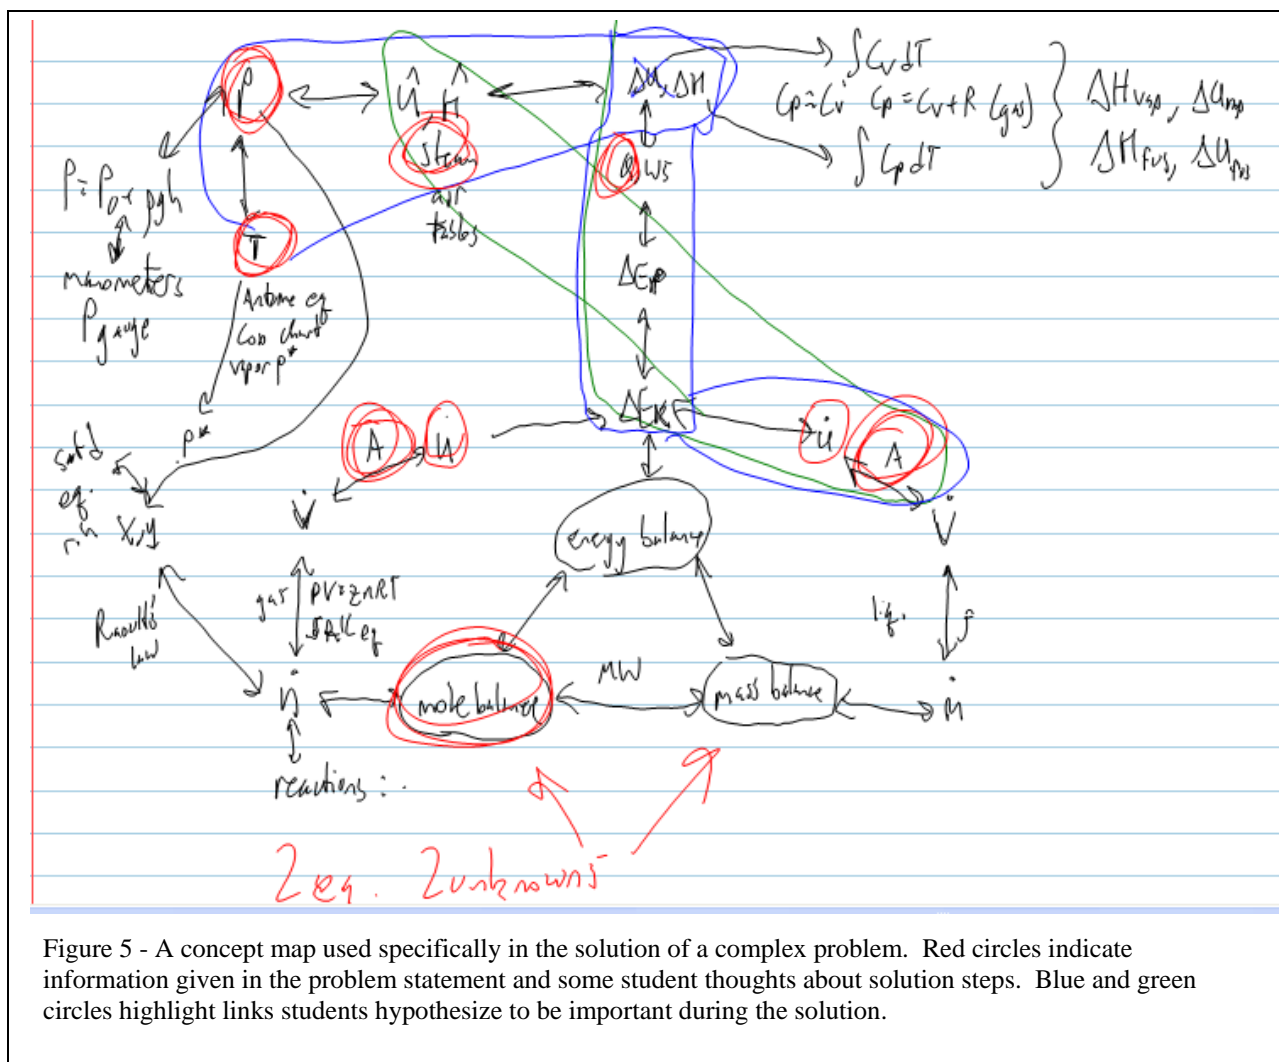 P
Û, Ĥ
ΔU, ΔH
∫ Cv dT
Cp ≈ Cv Cp = Cv + R (gas)
∫ Cp dT
ΔHvap, ΔUvap
ΔHfus, ΔUfus
steam
tables
Q, Ws
P = P0 + ρgh
manometers
Pgauge
T
Antoine eq
Cox chart
vapor p*
ΔEp
ΔEK
A u̇
u̇ A
p*
sat'd
eq.
x,y
V̇
V̇
energy balance
gas PV=znRT
SRK eq
liq. ρ
Raoult's
law
ṅ
mole balance
MW
mass balance
ṁ
reactions :.
2 eq. 2 unknowns
Figure 5 - A concept map used specifically in the solution of a complex problem. Red circles indicate
information given in the problem statement and some student thoughts about solution steps. Blue and green
circles highlight links students hypothesize to be important during the solution.